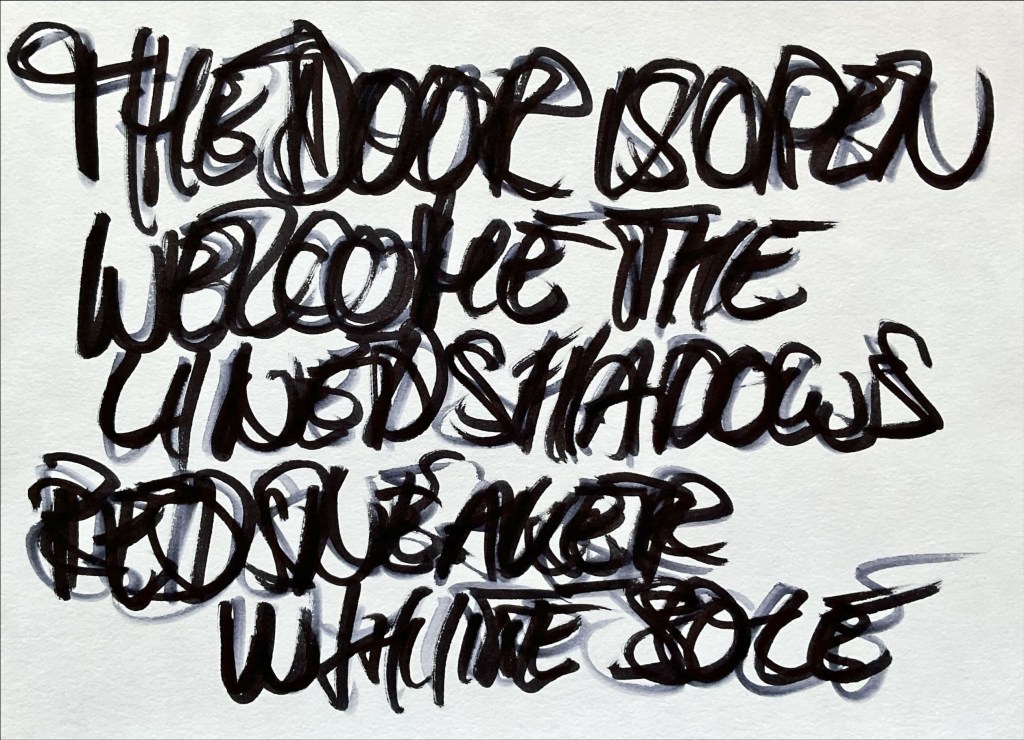 THE DOOR IS OPEN
WELCOME THE
LINED SHADOWS
RED SNEAKER
WHITE SOLE